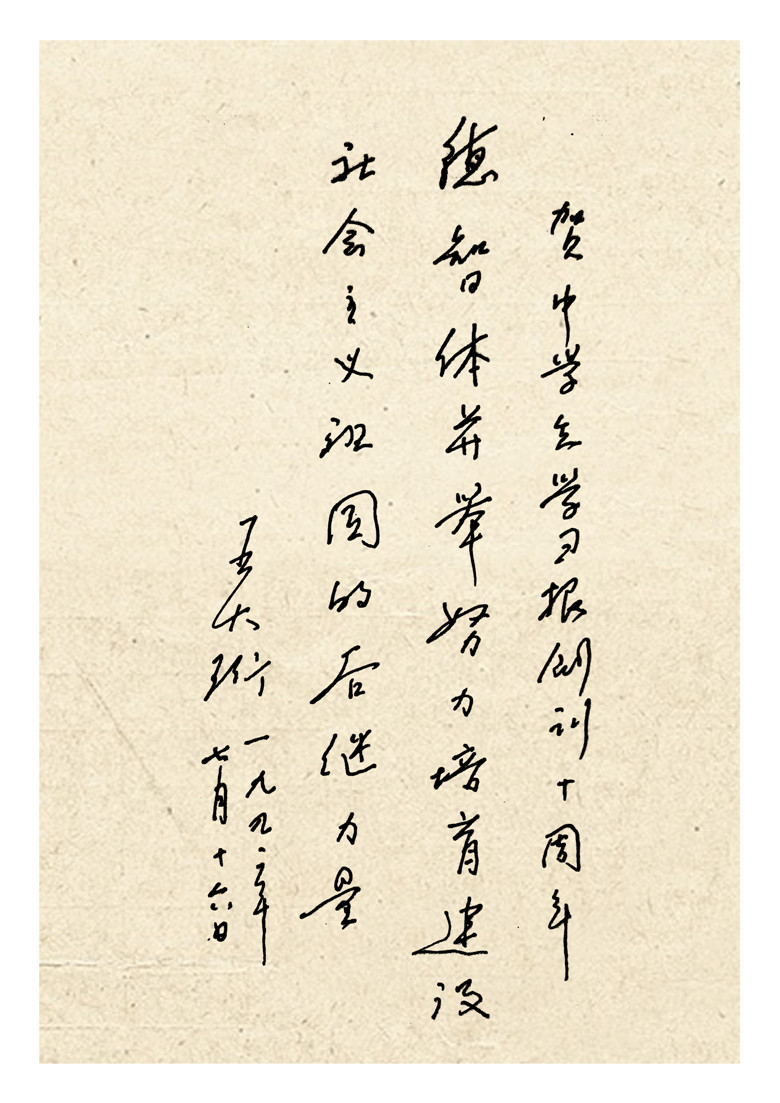 贺中学生学习报创刊十周年
德智体并举努力培育建设
社会主义祖国的后继力量
王大珩
一九九二年
七月十六日